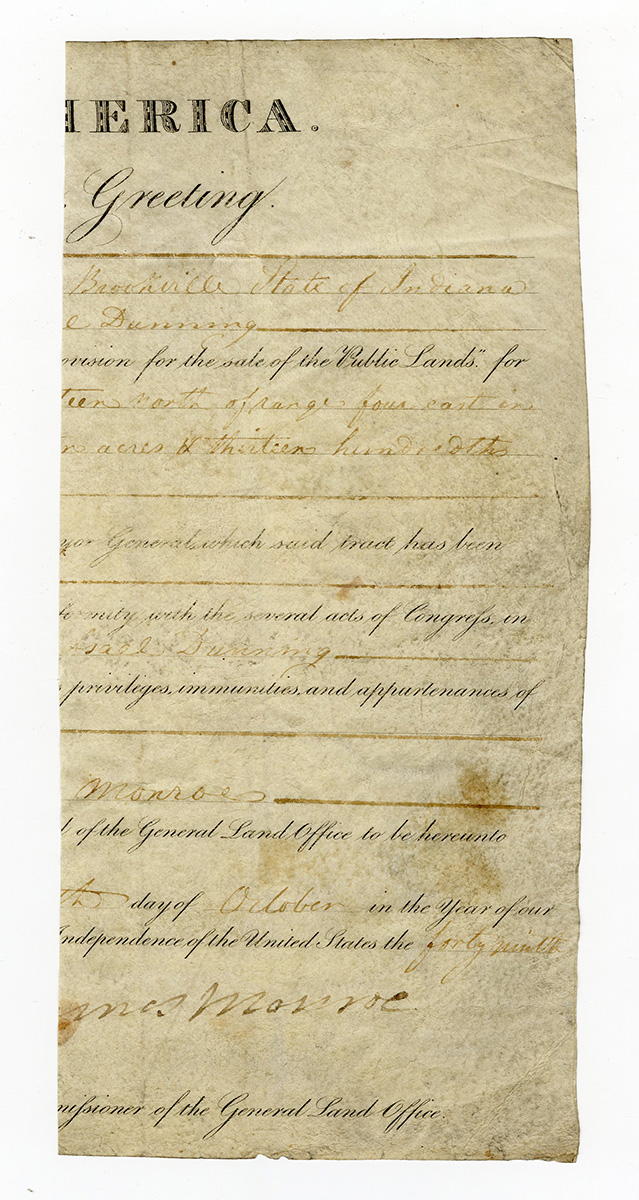 MERICA.
. Greeting.
Brookville State of Indiana
l Dunning
ovision for the sale of the Public Lands." for
teen north of range four east in
n acres & thirteen hundredths
yor General, which said tract has been
formity with the several acts of Congress, in
Asael Dunning
s privileges, immunities, and appurtenances of
Monroe
l of the General Land Office to be hereunto
th day of October in the Year of our
Independence of the United States the forty ninth
mes Monroe
missioner of the General Land Office.